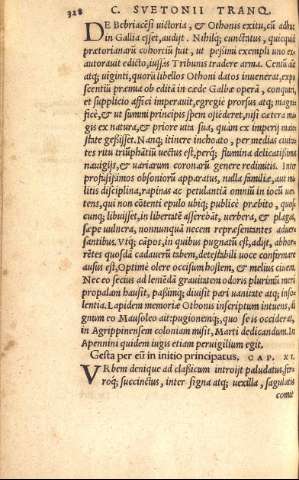 328 C. SVETONII TRANQ.
DE Bebriacēsi victoria, & Othonis exitu, cū adhuc
in Gallia esset, audijt. Nihilq; cunctatus, quicquid
prætorianarū cohortiū fuit, ut pessimi exempli uno ex
autoravit edicto, iussas Tribunis tradere arma. Centū aūt
atq; uiginti, quorū libellos Othoni datos inuenerat, expo
scentiū præmiū ob editā in cæde Galbæ operā, conquiri,
et supplicio affici imperauit, egregie prorsus atq; magni
ficè, & ut summi principis spem ostēderet, nisi cætera ma
gis ex natura, & priore uita sua, quam ex imperij maie
state gessisset. Nanq; itinere inchoato, per medias ciuita
tes ritu triūphātiū uectus est, perq; flumina delicatissimis
nauigijs, & uariarum coronarū genere redimitis. Inter
profusissimos obsoniorū apparatus, nulla familiæ, aut mi
litis disciplina, rapinas ac petulantiā omniū in iocū uer
tens, qui non cōtenti epulo ubiq; publicè præbito, quos
cunq; libuisset, in libertatē asserebāt, uerbera, & plagas,
sæpe uulnera, nonnunquā necem repræsentantes aduer
santibus. Vtq; cāpos, in quibus pugnatū est, adijt, abhor
rētes quosdā cadauerū tabem, detestabili uoce confirmare
ausus est, Optimè olere occisum hostem, & melius ciuem.
Nec eo secius ad leniēdā grauitatem odoris plurimū meri
propalam hausit, passimq; diuisit pari uanitate atq; inso
lentia. Lapidem memoriæ Othonis inscriptum intuens, di
gnum eo Mausoleo ait: pugionemq; quo se is occiderat,
in Agrippinensem coloniam misit, Marti dedicandum. In
Apennini quidem iugis etiam peruigilium egit.
Gesta per eū in initio principatus, CAP. XI.
VRbem denique ad classicum introijt paludatus, fer-
roq; succinctus, inter signa atq; uexilla, sagulatis
comit